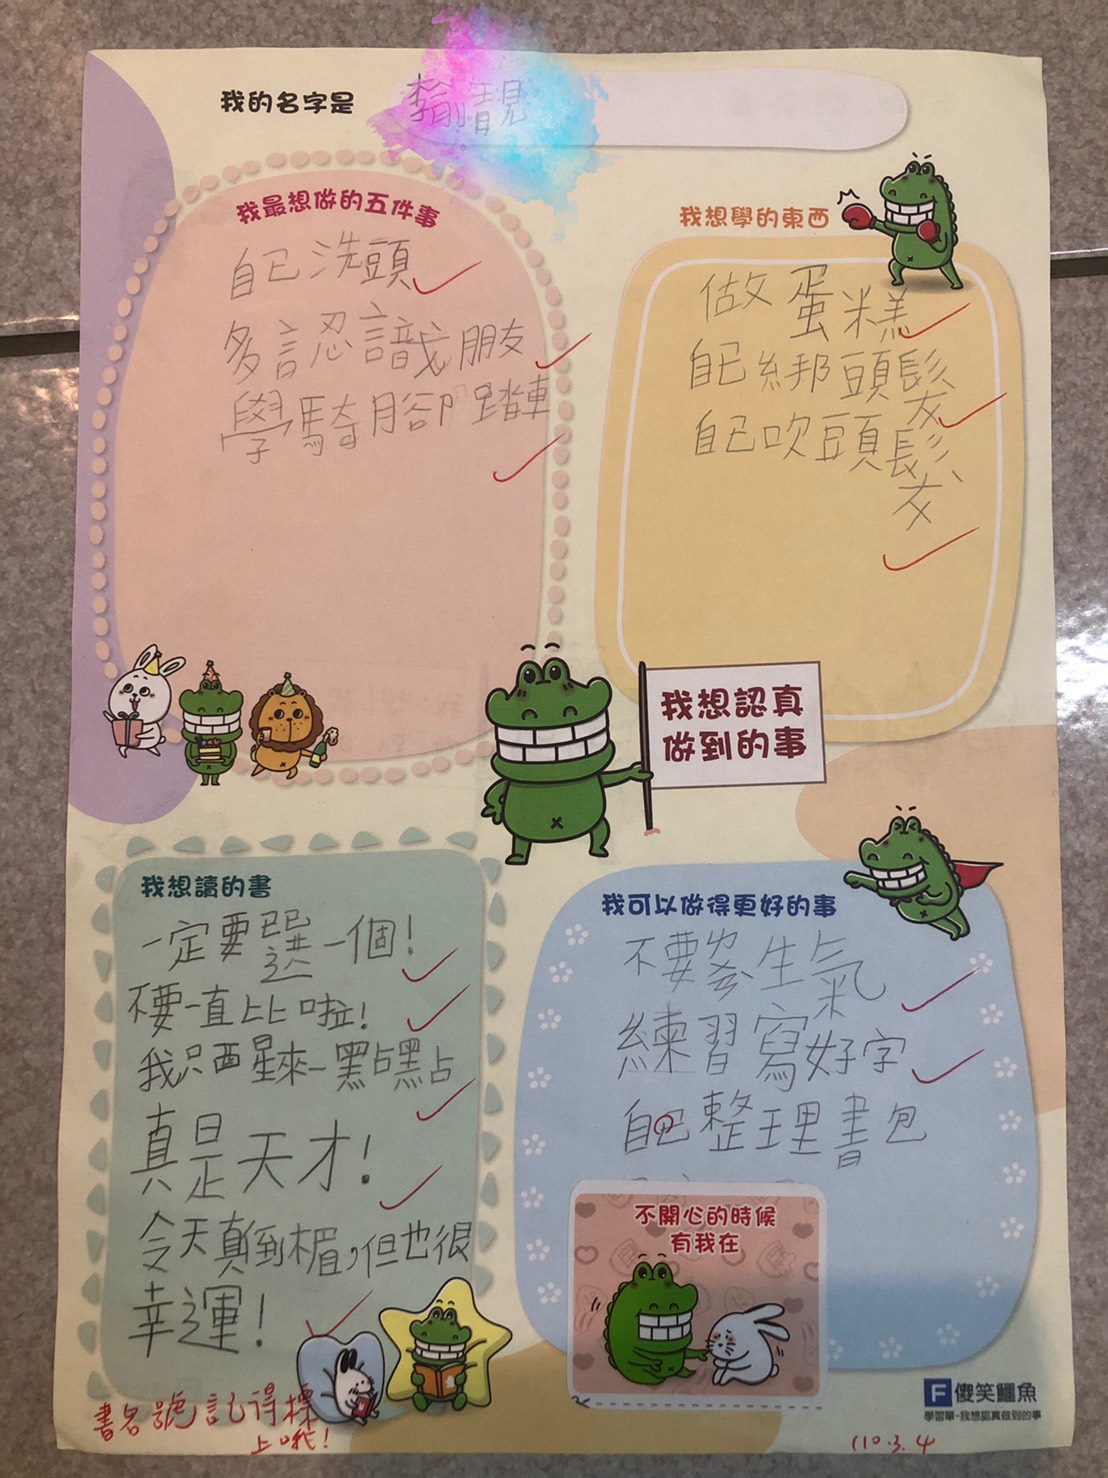 我的名字是
我最想做的五件事
自己洗頭
多認識朋友
學騎腳踏車
我想學的東西
做蛋糕
自己綁頭髮
自己吹頭髮
我想認真
做到的事
我想讀的書
一定要選一個!
不要一直比比啦!
我只要星來一點點
真是天才!
今天真倒楣,但也很
幸運!
書名號記得標
上哦!
我可以做得更好的事
不要常生氣
練習寫好字
自己整理書包
不開心的時候
有我在
F 傻笑鱷魚
學習單-我想認真做到的事
110.3.4